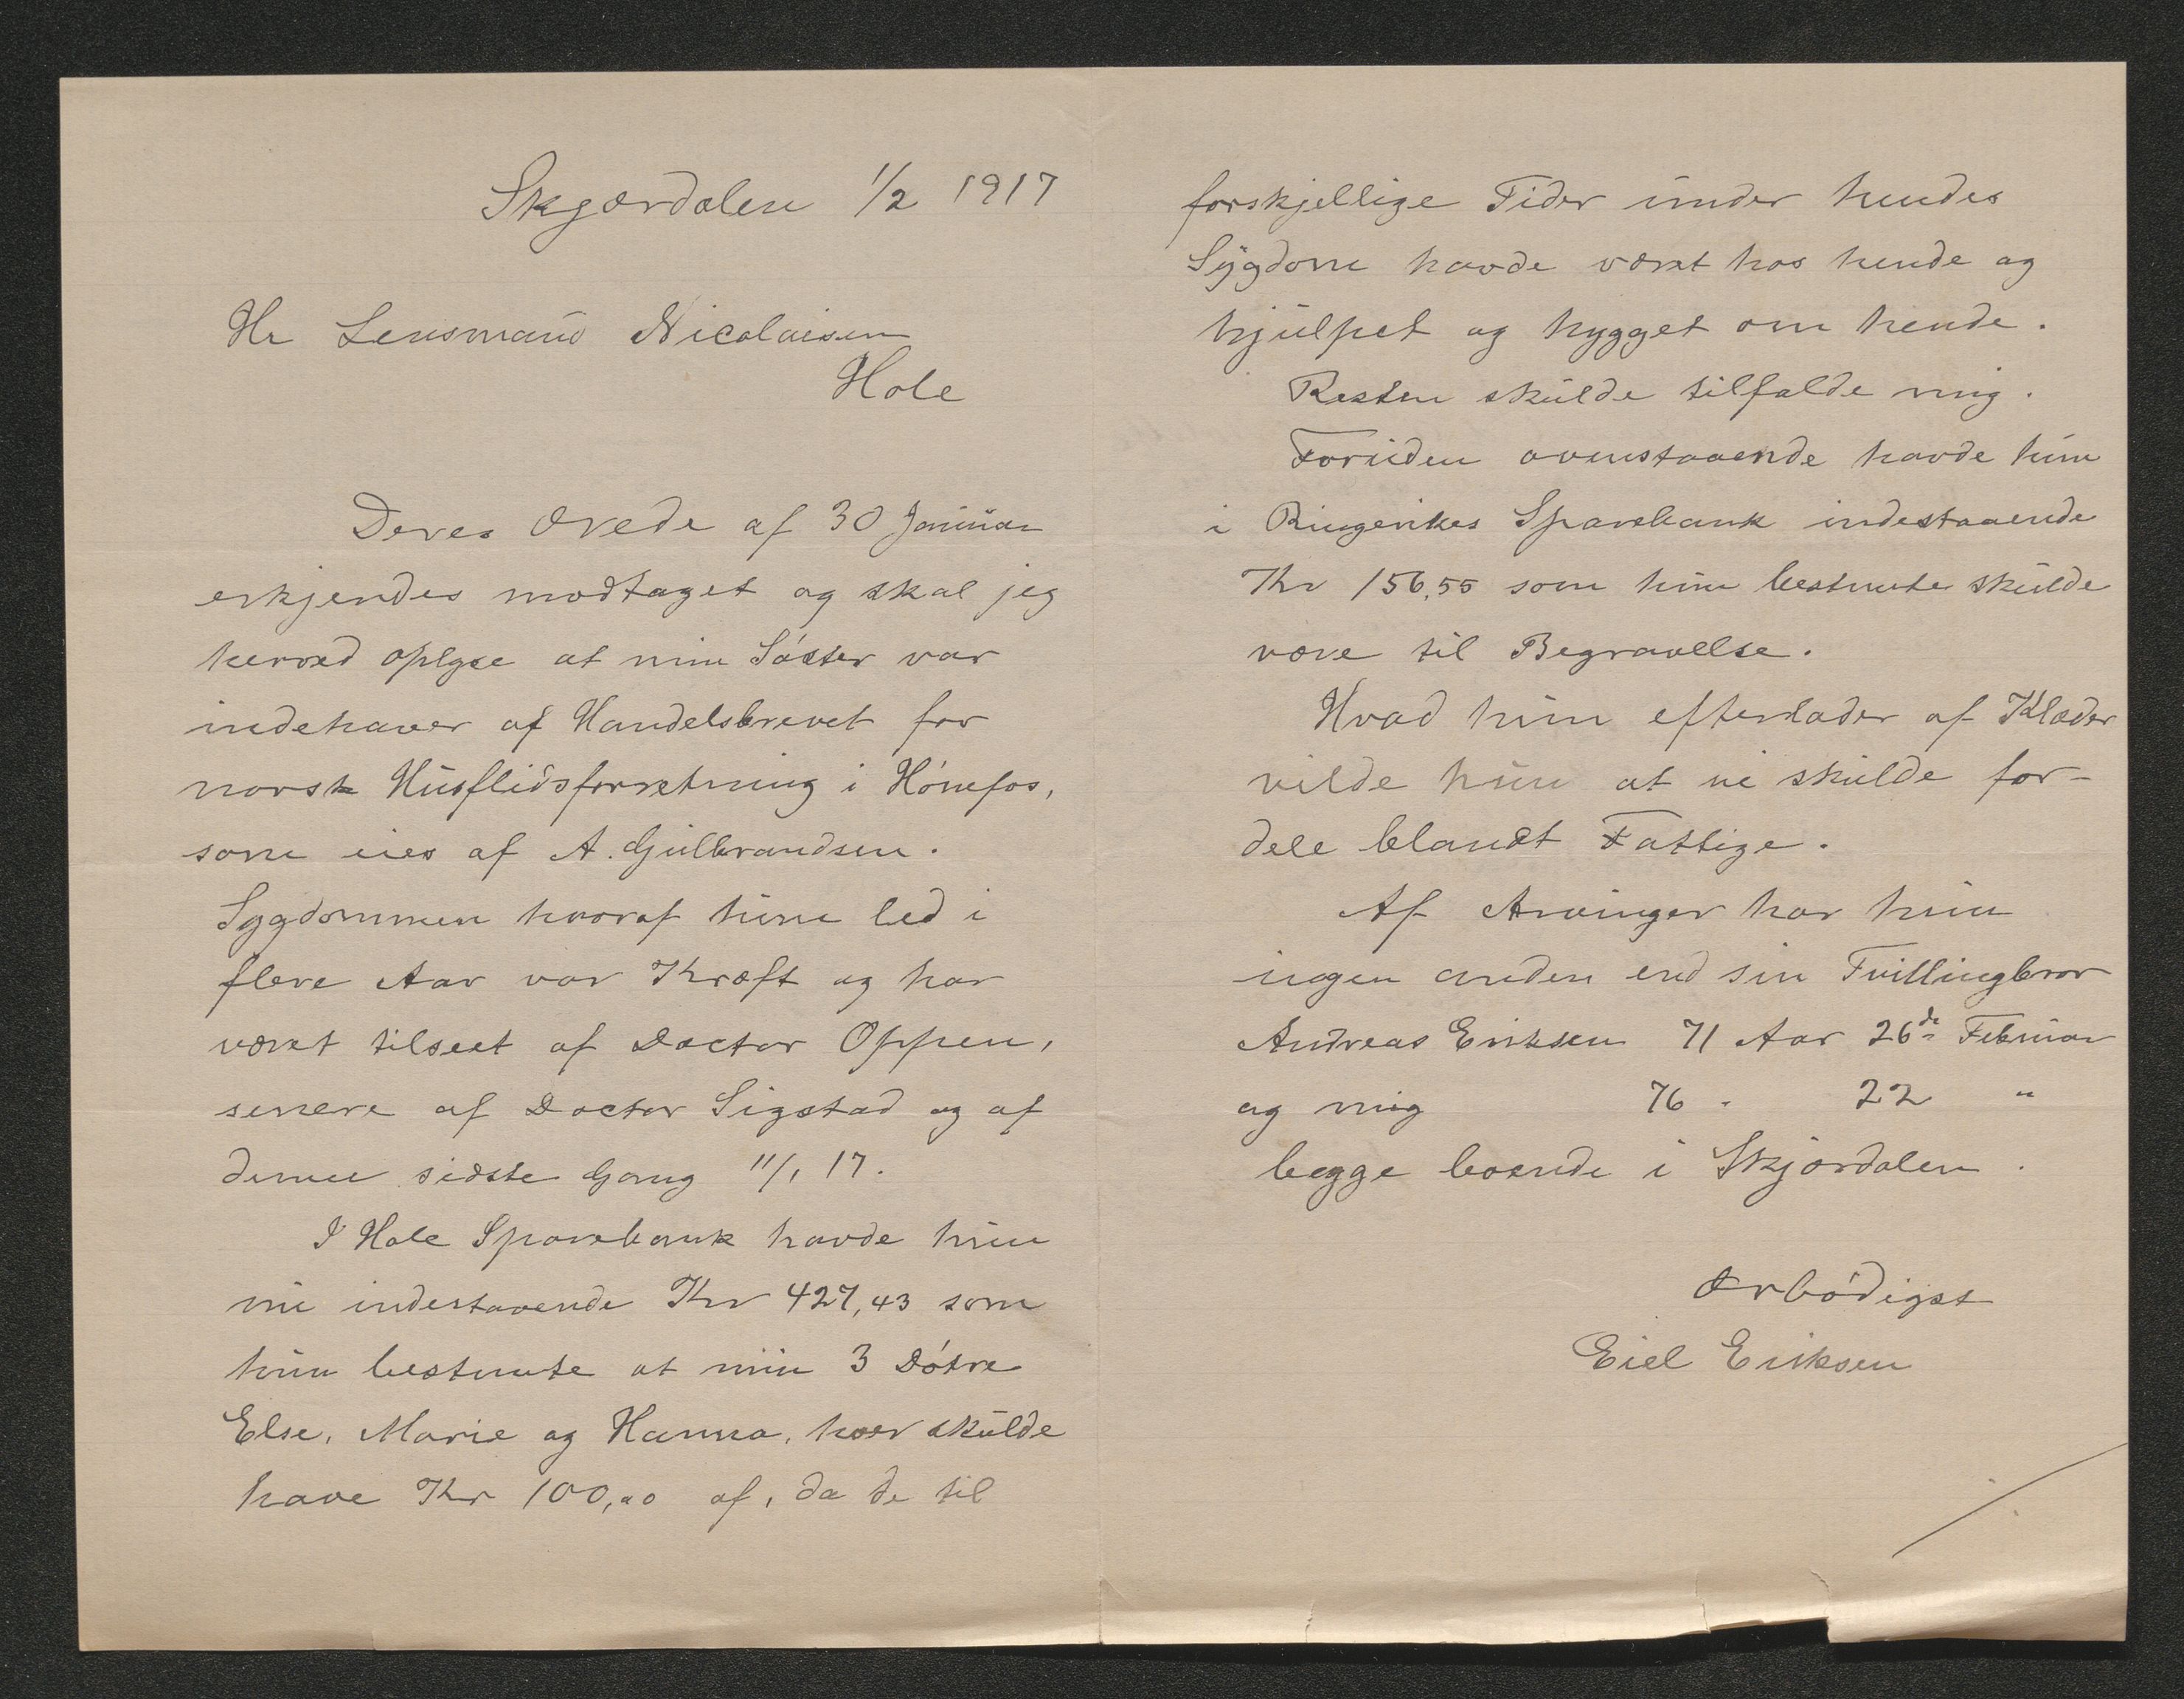 Skjærdalen 1/2 1917
Hr Lensmand Nicolaisen
Hole
Deres ærede af 30 Januar
erkjendes modtaget og skal jeg
herved oplyse at min Søster var
indehaver af Handelsbrevet for
norsk Husflidsforretning i Hønefos,
som eies af A. Gulbrandsen.
Sygdommen hvoraf hun led i
flere Aar var Kræft og har
været tilseet af Doctor Oppen,
senere af Doctor Sigstad og af
denne sidste Gang 11/1 17.
I Hole Sparebank havde hun
nu indestaaende Kr 427,43 som
hun bestemte at min 3 Døtre
Else, Marie og Hanna, hver skulde
have Kr 100,00 af, da de til
forskjellige Tider under hendes
Sygdom havde været hos hende og
hjulpet og hygget om hende.
Resten skulde tilfalde mig.
Foruden ovenstaaende havde hun
i Ringerikes Sparebank indestaaende
Kr 156,55 som hun bestemte skulde
være til Begravelse.
Hvad hun efterlader af Klæder
vilde hun at vi skulde for-
dele blandt Fattige.
Af Arvinger har hun
ingen anden end sin Tvillingbror
Andreas Eriksen 71 Aar 26de Februar
og mig 76 " 22 "
begge boende i Skjærdalen.
Ærbødigst
Eiel Eriksen